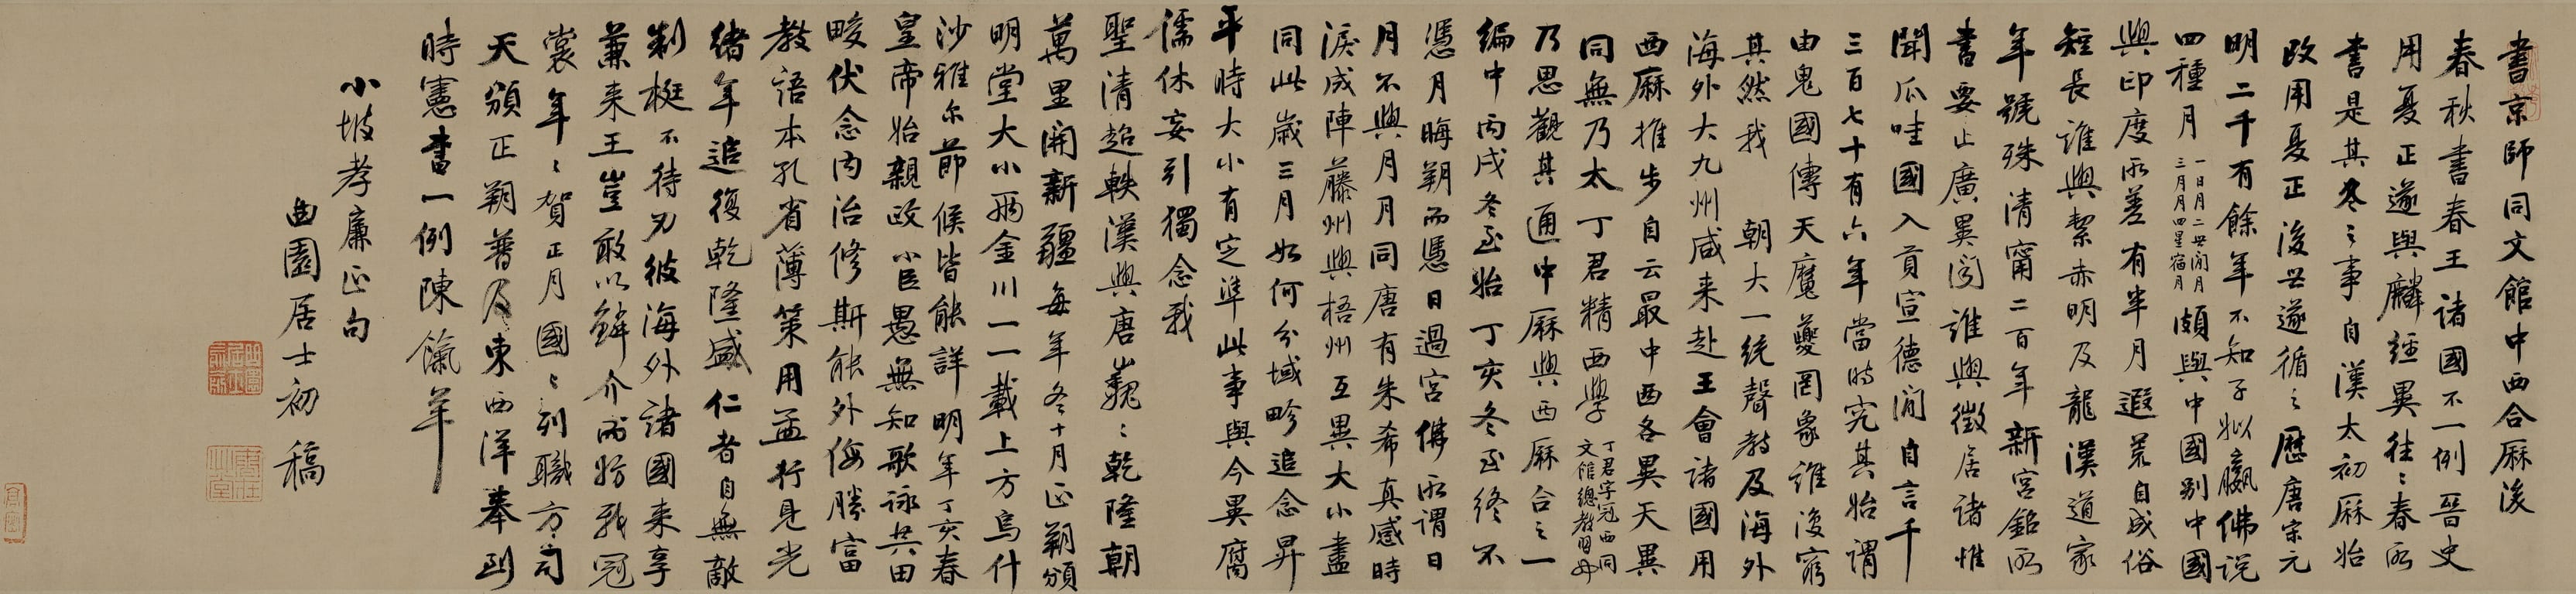 書京師同文館中西合厤後
春秋書春王諸國不一例晉史
用夏正遂與麟經異往〻春所
書是其冬〻事自漢太初厤始
改用夏正後世遂循之歷唐宋元
明二千有餘年不知子姒嬴佛說
四種月一日月二世間月三月月四星宿月頗與中國別中國
與印度所差有半月遐荒自成俗
短長誰與絜赤明及龍漢道家
年號殊清甯二百年新宮銘所
書要止廣異聞誰與徵居諸惟
聞爪哇國入貢宣德間自言千
三百七十有六年當時究其始謂
由鬼國傳天魔夔罔象誰復窮
其然我 朝大一統聲教及海外
海外大九州咸来赴王會諸國用
西厤推步自云最中西各異天異
同無乃太丁君精西學丁君字冠西同文館總教習也
乃思觀其通中厤與西厤合之一
編中丙戌冬至始丁亥冬至終不
憑月晦朔而憑日過宮佛所謂日
月不與月月同唐有朱希真感時
淚成陣藤州與梧州互異大小盡
同此歲三月如何分域畛追念昇
平時大小有定準此事與今異腐
儒休妄引獨念我
聖清超軼漢與唐巍〻乾隆朝
萬里開新疆每年冬十月正朔頒
明堂大小兩金川一一載上方烏什
沙雅尔節候皆能詳明年丁亥春
皇帝始親政小臣愚無知歌詠共田
畯伏念內治修斯能外侮勝富
教語本孔省薄策用孟行見光
緒年追復乾隆盛仁者自無敵
制梃不待刃彼海外諸國来享
兼来王豈敢以鱗介而妨我冠
裳年〻賀正月國〻列職方司
天頒正朔普及東西洋奉到
時憲書一例陳餼羊
小坡孝廉正句
曲園居士初稿